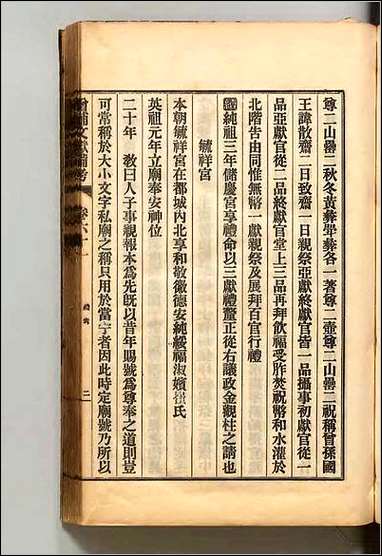 尊二山罍二秋冬黃彝斝彝各一著尊二壺尊二山罍二祝稱曾孫國
王諱散齋二日致齋一日親祭亞獻終獻官皆一品攝事初獻官從一
品亞獻官從二品終獻官堂上三品再拜飮福受胙焚祝幣和水灌於
北階告由同惟無幣一獻親祭及展拜百官行禮
純祖三年儲慶宮享禮命以三獻禮釐正從右議政金觀柱之請也
毓祥宮
本朝毓祥宮在都城內北享和敬徽德安純綏福淑嬪崔氏
英祖元年立廟奉安神位
二十年 敎曰人子事親報本爲先旣以昔年賜號爲尊奉之道則豈
可常稱於大小文字私廟之稱只用於當宁者因此時定廟號乃所以
增補文獻備考 卷六十一 禮考 三